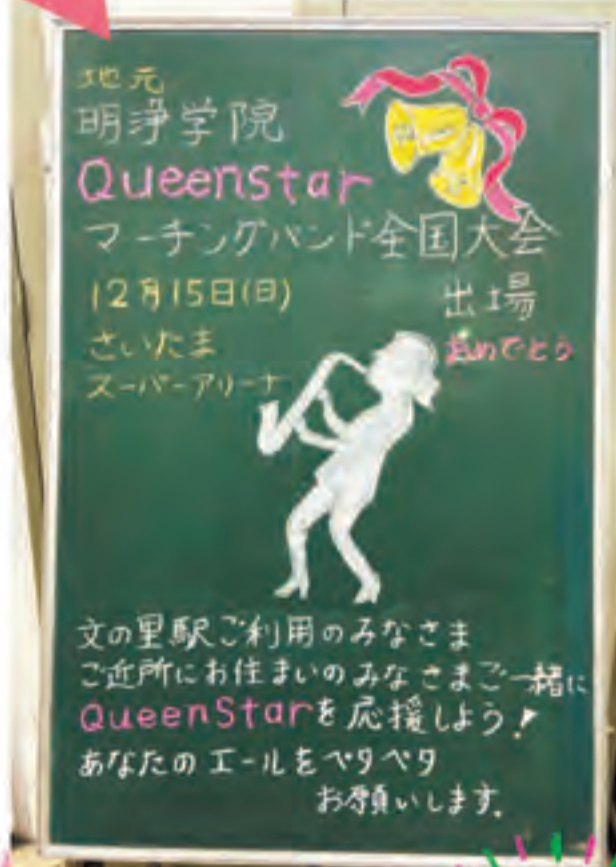 地元
明浄学院
Queenstar
マーチングバンド全国大会
12月15日(日) 出場
さいたま おめでとう
スーパーアリーナ
文の里駅ご利用のみなさま
ご近所にお住まいのみなさまご一緒に
QueenStarを応援しよう!
あなたのエールをペタペタ
お願いします。